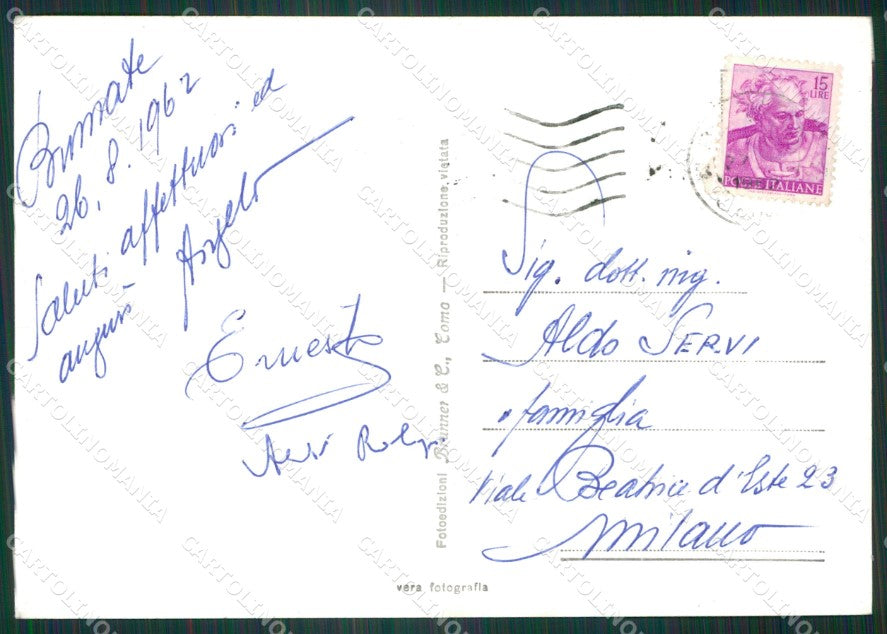 Brunate
26.8.1962
Saluti affettuosi ed
auguri Angelo
Ernesto
Fotoedizioni Brunner & C., Como — Riproduzione vietata
vera fotografia
15
LIRE
POSTE ITALIANE
Sig. dott. ing.
Aldo SERVI
famiglia
Viale Beatrice d'Este 23
Milano
CARTOLINOMANIA